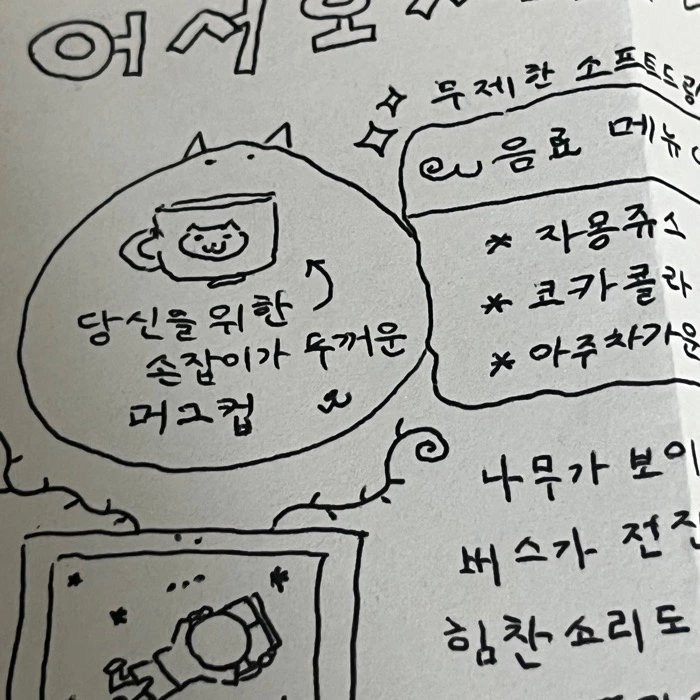 어서오
무제한 소프트드링
음료 메뉴
* 자몽쥬스
* 코카콜라
* 아주차가운
당신을 위한
손잡이가 두꺼운
머그컵
나무가 보이
버스가 전진
힘찬 소리도